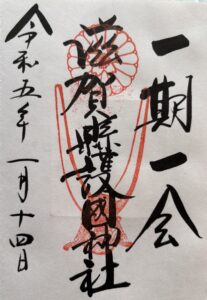 一期一会
滋賀縣護國神社
令和五年一月十四日